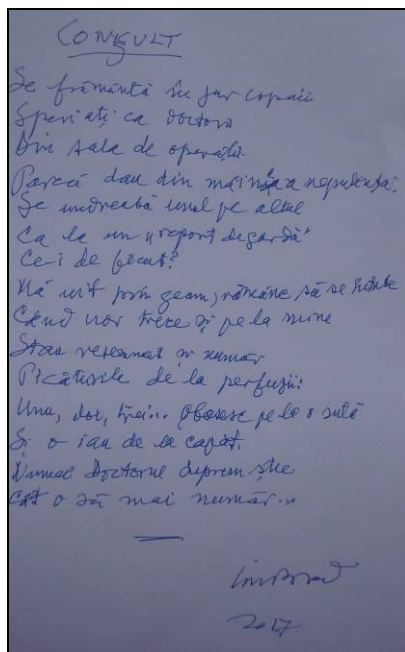 CONSULT
Se frământă în jur copacii
Speriați ca doctorii
Din sala de operații.
Parcă dau din mâini a neputință.
Se întreabă unul pe altul
Ca la un „report de gardă”
Ce-i de făcut?
Mă uit prin geam, rămâne să se
Când vor trece și pe la mine
Stau resemnat și număr
Picăturile de la perfuzii:
Unu, doi, trei... Obosesc pe la o sută
Și o iau de la capăt.
Numai Doctorul suprem știe
Cât o să mai număr...
2017